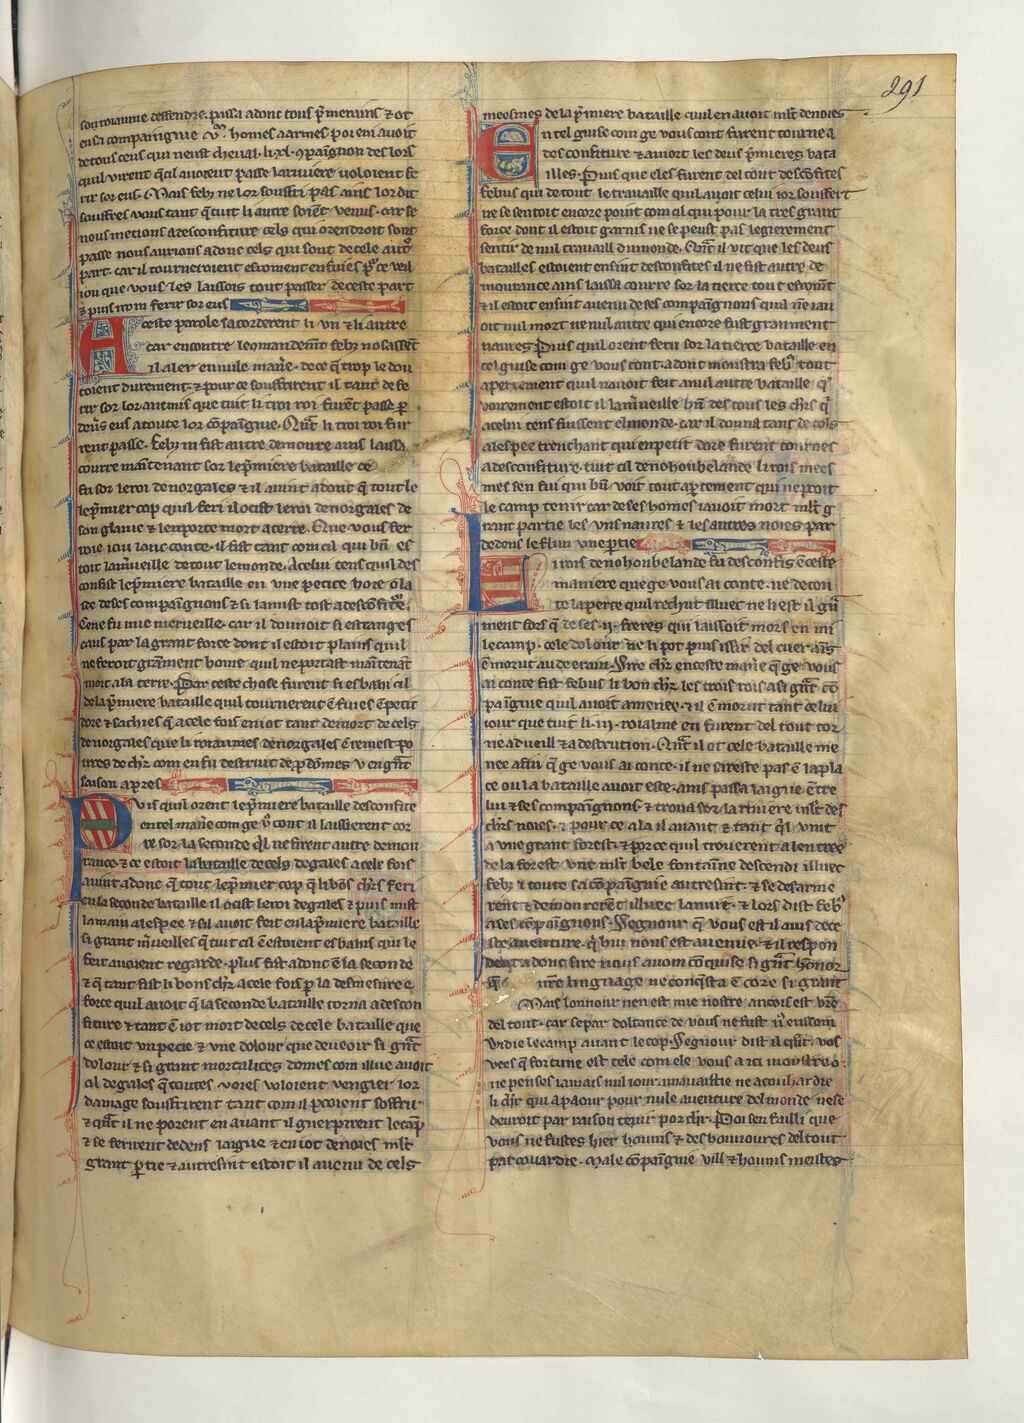 291
son roiaume deffendre. passa adonc tous p̃merains ⁊ ot
en sa compaingnie homes a armes poi en i auoit
de tous ceus qui neust cheual. cõpaignon des lors
quil virent q̃ cil auoient passe la riuiere uoloient fe
rir sor eus. Mais feb9 ne lor souffri pas ains lor dit
souffres vous tant q̃ tuit li autre soient venus. car se
nous metions a desconfiture cels qui orendroit sont
passe nous aurions adonc cels qui sont de cele autre
part. car il torneroient esroment en fuies ce veil
iou que vous les laissois tout passer de ceste part
⁊ puis irom ferir sor eus
Aceste parole sacorderent li vn ⁊ li autre
car encontre le cõmandem̃t feb9 nosassẽt
il aler en nule mañe. de ce q̃ trop le dou
toient durement. ⁊ pour ce souffrirent il tant de fe
rir sor lor anemis que tuit li troi roi furẽt passe p
deuers eus a toute lor cõpaignie. Quãt li troi roi fu
rent passe. feb9 ni fist autre demoure ains laissa
courre maintenant sor le p̃miere bataille ce
fu sor le roi de norgales ⁊ il auint adonc q̃ tout le
p̃mier cop quil feri il ocist le roi de norgales de
son glaiue ⁊ len porte mort a terre. Que vous fer
roie iou lonc conte. il fist tant com cil qui bñ es
toit la m̃ueille de tout le monde. A celui tens quil des
confist le p̃miere bataille en vne petite hore o la
de de ses compaignons ⁊ si la mist tost a desconfiture.
Cene fu mie merueille. car il donnoit si estranges
caus par la grant force dont il estoit plains quil
ne feroit gram̃ment home quil ne portast maintenãt
mort a la terre. Par ceste chose furent si esbahi cil
de la p̃miere bataille quil tournerent ẽ fuies ẽ petit
dore ⁊ sachies q̃ a cele fois en i ot tant de mort de cels
de norgales que li roiaumes de norgales ẽ remest po
ures de ch̃rs com en fu destruit de p̃domes vn grãt
saison apres
Puis quil orent le p̃miere bataille desconfite
en tel mañe com ge v9 cont il laissierent cor
re sor la seconde quil ne firent autre demou
rance. ⁊ ce estoit la bataille de cels de gales a cele fois
auint adonc q̃ tout le p̃mier cop q̃ li bõs ch̃rs feri
en la seconde bataille il ocist le roi de gales ⁊ puis mist
la main a lespee ⁊ sil auoit feit en la p̃miere bataille
si grant m̃ueilles q̃ tuit cil ẽ estoient esbahis qui le
feit auoient regarde. plus fist adonc ẽ la seconde
⁊ q̃ tant fist li bons ch̃rs a cele fois p la desmesuree
force quil auoit q̃ la seconde bataille torna a descon
fiture ⁊ tant ẽ i ot mort de cels de cele bataille que
ce estoit vn pecie ⁊ vne dolour que de veoir si grãt
dolour ⁊ si grant mortalites domes com illuc auoit
cil de gales q̃ toutes voies voloient vengier lor
damage souffrirent tant com il pooient soffrir
⁊ quãt il ne porent en auant il guerpirent le cãp
⁊ se ferirent dedens laigue ⁊ en i ot de noies m̃lt
grant p̃tie ⁊ autresint estoit il auenu de cels
meesmes de la p̃miere bataille quil en auoit mlt de noies
En tel guise com ge vous cont furent tourne a
desconfiture ⁊ a mort les deus p̃mieres bata
illes. Puis que eles furent del tout descõfites
febus qui de tout le trauaille quil auoit celui ior souffert
ne se sentoit encore point com cil qui pour la tres grant
force dont il estoit garnis ne se peust pas legierement
sentir de nul trauaill du monde. Quãt il vit que les deus
batailles estoient ensint desconfites il ne fist autre de
mourance ains laissa courre sor la tierce tout esrom̃t
⁊ il estoit ensint auenu de ses compaignons quil nẽ i au
oit nul mort ne nul autre qui encore fust gram̃ment
naures. Puis quil orent feru sor la tierce bataille en
tel guise com ge vous cont. adont monstra feb9 tout
apertement quil nauoit feit a nul autre bataille
voirement estoit il la m̃ueille bñ des tous les ch̃rs q̃
a celui tens fuissent el monde. car il douna tant de cols
a lespee trenchant qui en petit dore furent tournes
a desconfiture. tuit cil de nohoubelande li rois mees
mes sen fui qui bñ voit tout ap̃tement qui ne pooit
le camp tenir car de ses homes i auoit mort mlt g
rant partie les vns naures ⁊ les autres noies par
dedens le flun vne p̃tie
Li rois de nohoubelande fu desconfis ẽ ceste
maniere que ge vous ai conte. ne de tou
te la perte quil rechut illuec ne li est il grã
ment fors q̃ de ses .ii. freres qui laissoit mors en mi
le camp. cele dolour ne li pot puis issir del cuer ains
ẽ morut au deerain. Sire ch̃r en ceste mañe q̃ ge vous
ai conte fist febus li bon ch̃r les trois rois a si grãt cõ
paignie quil auoit amenee. ⁊ il ẽ morut tant de lui
iour que tuit li .iii. roialme en furent del tout tor
ne a dueill ⁊ a destrution. Quãt il ot cele bataille me
nee a fin q̃ ge vous ai conte. il ne sareste pas ẽ la pla
ce ou la bataille auoit este. ains passa laigue ẽtre
lui ⁊ ses compaignons ⁊ troua sor la riuiere mlt des
ch̃rs noies. ⁊ pour ce ala il auant ⁊ tant q̃ il vint
a vne grant forest. ⁊ por ce quil trouerent a lentree
de la forest vne mlt bele fontaine descendi illuec
feb9 ⁊ toute sa cõpaignie autresint. ⁊ se desarme
rent ⁊ demourerent illuec la nuit. ⁊ lors dist feb9
a ses cõpaignons. Segnour q̃ vous est il auis de ce
ste auenture. q̃ hui nous est auenue. ⁊ il respon
dent adonc sire nous auom cõquise si grãt honor
nr̃e lingnage ne conq̃sta ẽcore si grant
Mais lonnour nen est mie nostre ancois est vr̃e
del tout. car se par doltance de vous ne fust nous eussom
vidie le camp auant le cop. Segnour dist il q̃nt vos
vees q̃ fortune est tele com ele vous a ici monstree.
ne penses iamais nul iour a mauaistie ne a couhardie
li ch̃r qui a paour pour nule auenture del monde ne se
deuroit par raison tenir por ch̃r. Poi sen failli que
vous ne fustes hier hounis ⁊ deshounoures del tout
par couardie. Male cõpaignie vill ⁊ hounis meistes